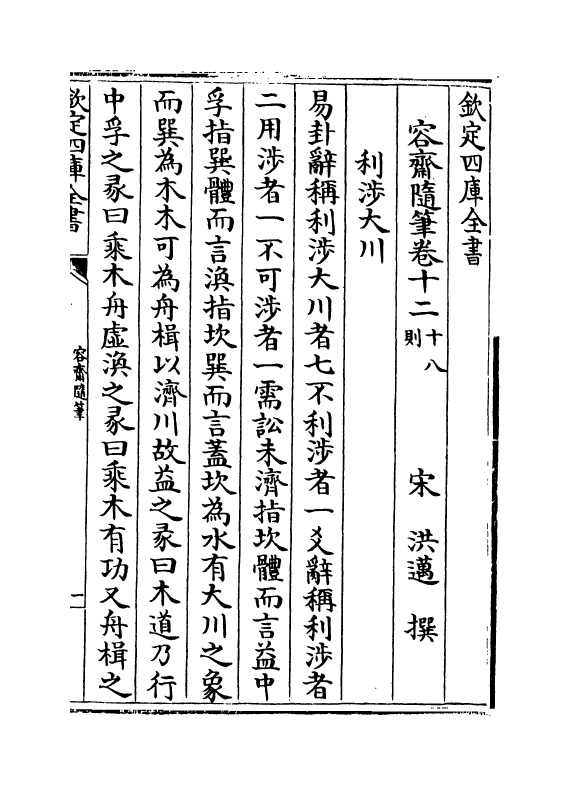 欽定四庫全書
容齋隨筆卷十二十八則
宋 洪邁 撰
利涉大川
易卦辭稱利涉大川者七不利涉者一爻辭稱利涉者
二用涉者一不可涉者一需訟未濟指坎體而言益中
孚指巽體而言渙指坎巽而言蓋坎為水有大川之象
而巽為木木可為舟楫以濟川故益之彖曰木道乃行
中孚之彖曰乘木舟虛渙之彖曰乘木有功又舟楫之
欽定四庫全書
容齋隨筆
二